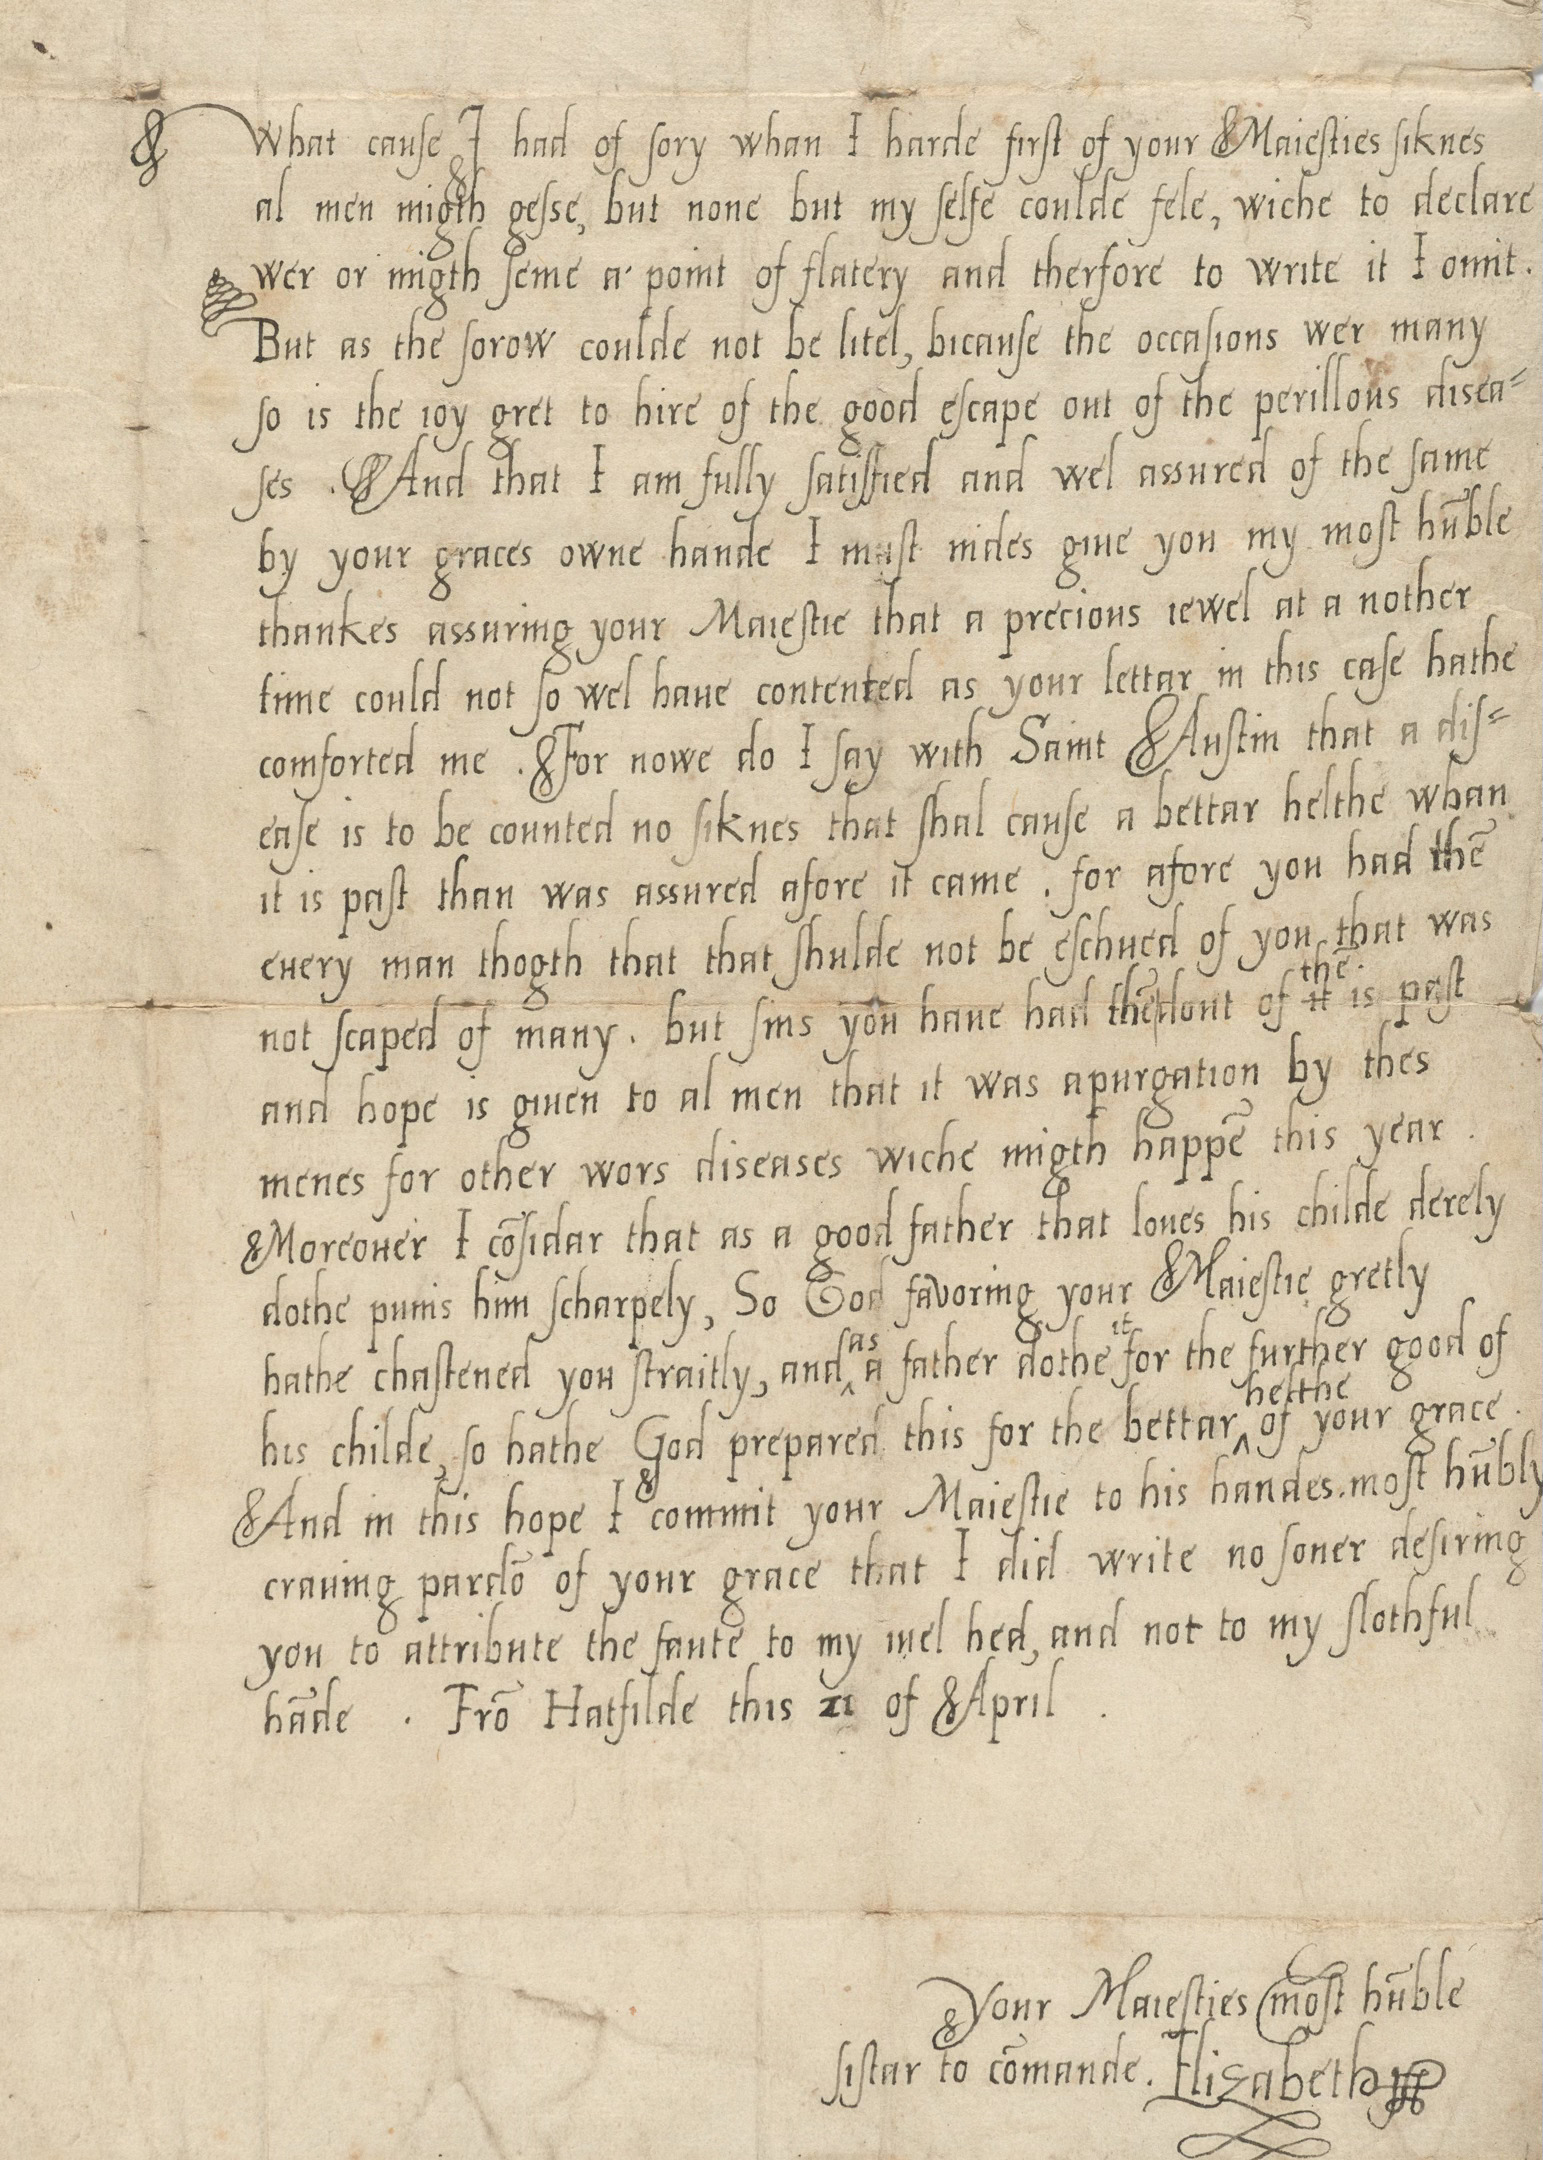 What cause I had of sory whan I harde first of your Maiesties siknes
al men migth gesse, but none but my selfe coulde fele, wiche to declare
wer or migth seme a point of flatery and therfore to write it I omit.
But as the sorow coulde not be litel, bicause the occasions wer many
so is the ioy gret to hire of the good escape out of the perillous disea=
ses . And that I am fully satisfied and wel assured of the same
by your graces owne hande I must nides giue you my most hūble
thankes assuring your Maiestie that a precious iewel at a nother
time could not so wel haue contented as your lettar in this case hathe
comforted me . For nowe do I say with Saint Austin that a dis=
ease is to be counted no siknes that shal cause a bettar helthe whan
it is past than was assured afore it came . for afore you had thē
euery man thogth that that shulde not be eschued of you that was
not scaped of many . but sins you haue had thē dout of it thē is past
and hope is giuen to al men that it was a purgation by thes
menes for other wors diseases wiche migth happē this year .
Moreouer I cōsidar that as a good father that loues his childe derely
dothe punis him scharpely, So God favoring your Maiestie gretly
hathe chastened you straitly, and as a father dothe it for the further good of
his childe, so hathe God prepared this for the bettar helthe of your grace .
And in this hope I commit your Maiestie to his handes . most hūbly
crauing pardō of your grace that I did write no soner desiring
you to attribute the faute to my iuel hed, and not to my slothful
hāde . Frō Hatfilde this 21 of April .
Your Maiesties most hūble
sistar to cōmande . Elizabeth